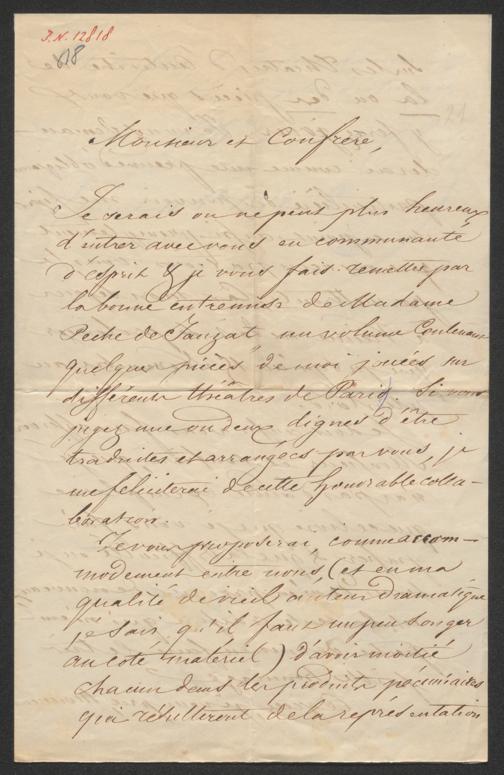 I.N. 12818
818
21
Monsieur et Confrère,
Je serais on ne peut plus heureux
d'entrer avec vous en communauté
d'esprit & je vous fais remettre par
la bonne entremise de Madame
Peche de un volume Contenant
quelque pièces de moi jouées sur
différents théâtres de Paris. Si vous
jugez une ou deux dignes d'être
traduites et arrangées par vous, je
me féliciterai de cette honorable colla-
boration.
Je vous proposerai comme accom-
modement entre nous (et en ma
qualité de vieil auteur dramatique
je sais qu'il faut un peu songer
au coté matériel) d'avoir moitié
chacun dans les produits pécuniaires
qui résulteront de la représentation